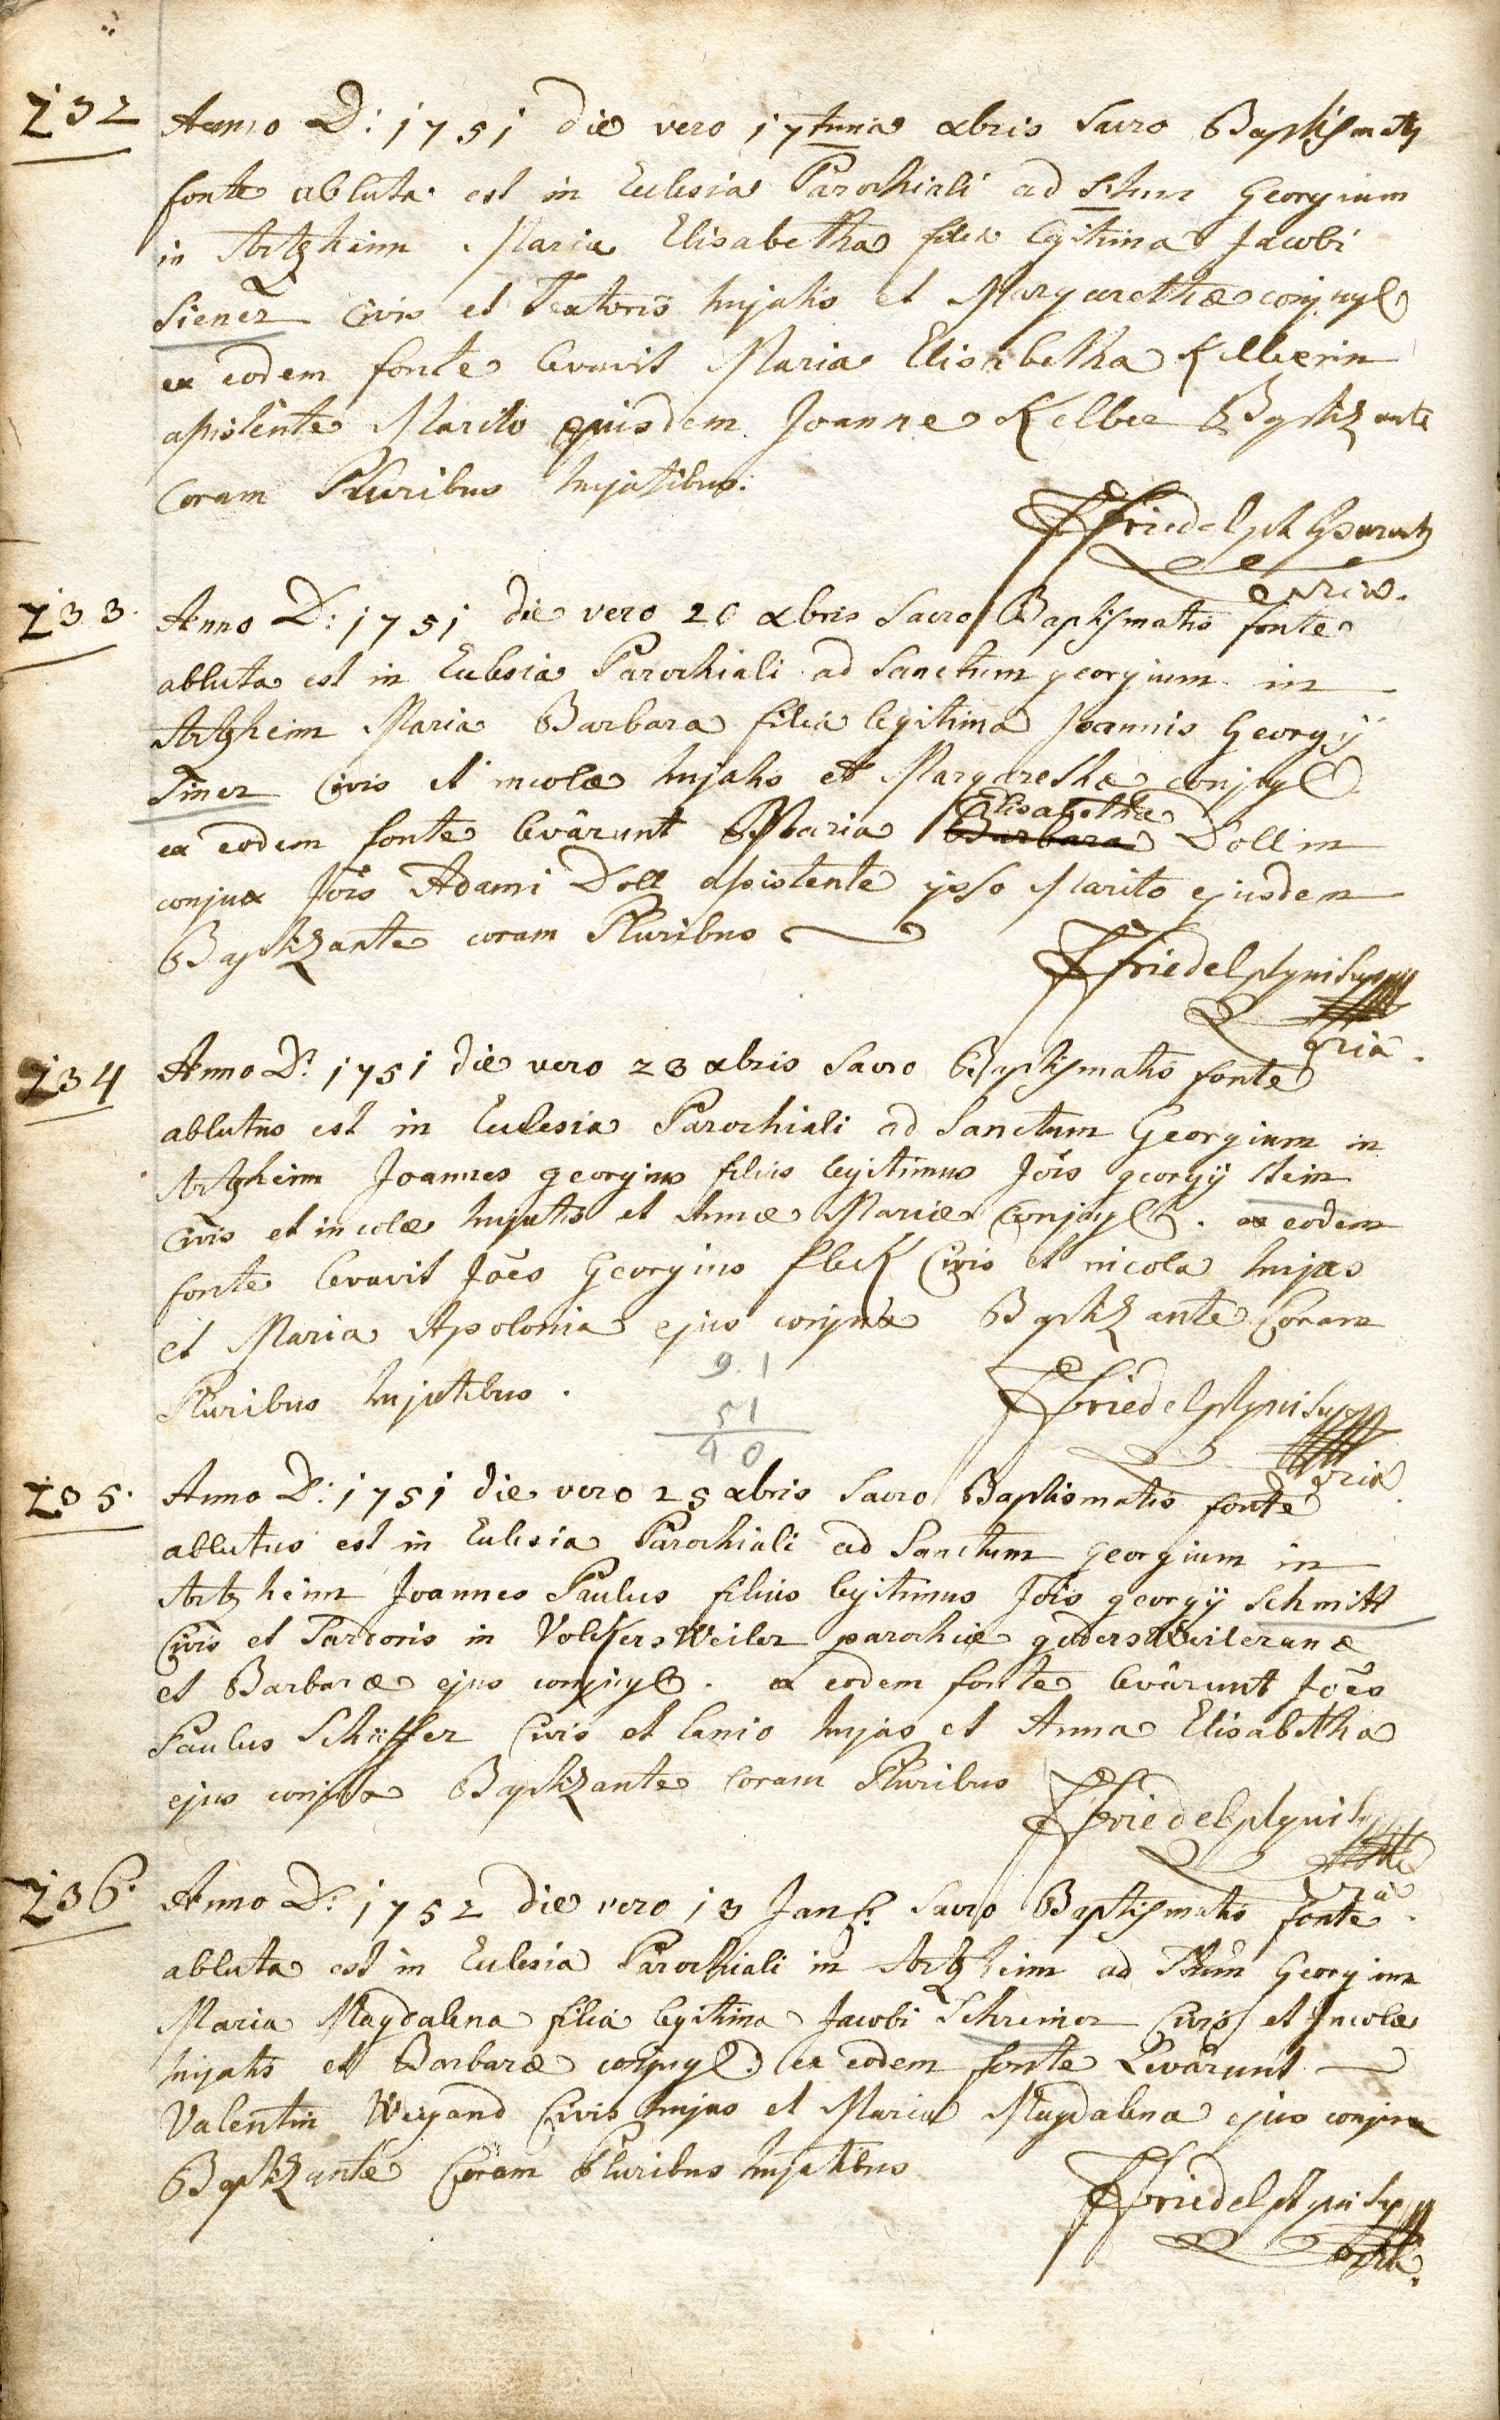 232
Anno D: 1751 die vero 17tima xbris Sacro Baptismatis
fonte abluta est in Ecclesia Parochiali ad Stum Georgium
in Artzheim Maria Elisabetha filia legitima Jacobi
Siener Civis et Textoris hujatis et Margarethæ conjug
ex eodem fonte levavit Maria Elisabetha Kelberin
assistente Marito ejusdem Joanne Kelber Bgstizante
Coram Pluribus hujatibus:
Friedel
233.
Anno D: 1751 die vero 20 xbris Sacro Baptismatis fonte
abluta est in Eclesia Parochiali ad Sanctum georgium in
Artzheim Maria Barbara filia legitima Joannis Georgij
Siner Civis et incolæ hujatis et Margarethæ conjug
ex eodem fonte levârunt Maria Elisabetha Dollin
conjux Jõis Adami Doll assistente ipso Marito ejusdem
Baptizante coram Pluribus
Friedel
234
Anno D: 1751 die vero 23 xbris Sacro Baptismatis fonte
ablutus est in Ecclesia Parochiali ad Sanctum Georgium in
Artzheim Joannes georgius filius legitimus Jõis georgÿ Stein
Civis et incolæ hujatis et Annæ Mariæ Conjug. ex eodem
fonte levavit Joẽs Georgius fleck Civis et incola hujas
et Maria Apolonia ejus conjux Baptizante Coram
Pluribus hujatibus.
9.1
51
40
Friedel
235.
Anno D: 1751 die vero 25 xbris Sacro Baptismatis fonte
ablutus est in Eclesia Parochiali ad Sanctum Georgium in
Artzheim Joannes Paulus filius legitimus Jõis georgÿ Schmitt
Civis et Sartoris in VolckersWeiler parochiæ godersWeileranæ
et Barbaræ ejus conjug. ex eodem fonte levârunt Joẽs
Paulus Schäffer Civis et lanio hujas et Anna Elisabetha
ejus conjux Baptizante Coram Pluribus
Friedel
236.
Anno D: 1752 die vero 13 Jan Sacro Baptismatis fonte
abluta est in Eclesia Parochiali in Artzheim ad Stum Georgium
Maria Magdalena filia legitima Jacobi Schreiner Civis et Incolæ
hujatis et Barbaræ conjug. ex eodem fonte Levârunt
Valentin Weÿand Civis hujas et Maria Magdalena ejus conjux
Baptizante Coram Pluribus hujatibus
Friedel